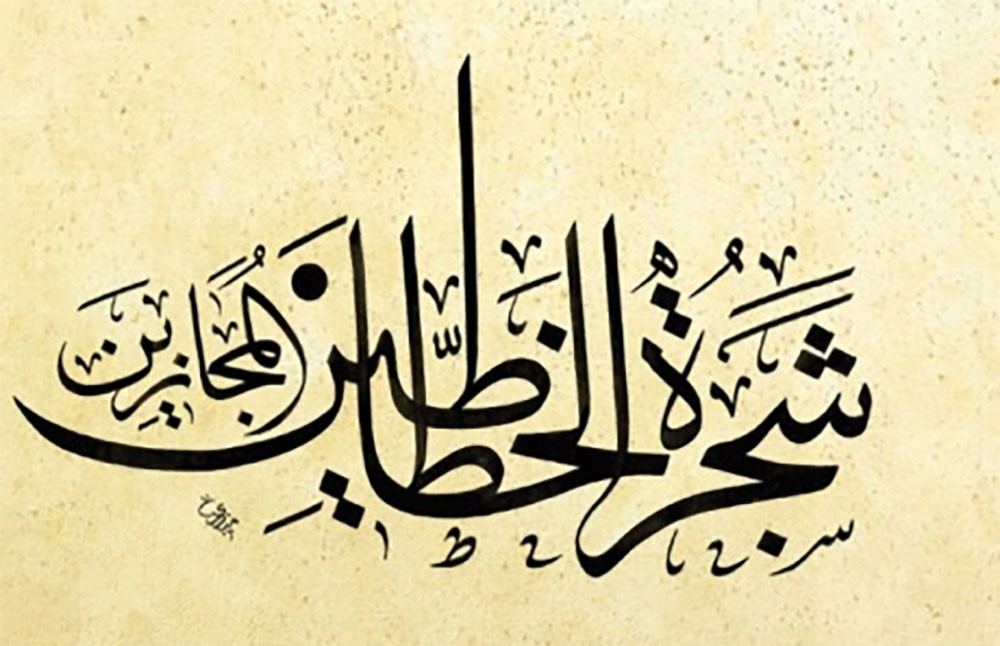 شَجَرَةُ الخَطَّاطِينَ المُجَازِينَ